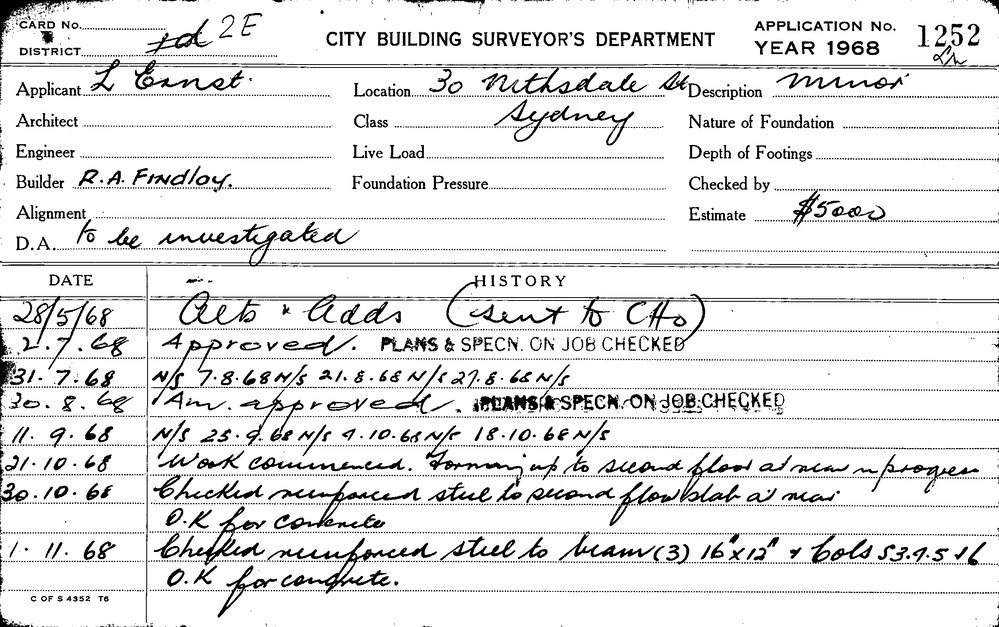 CARD No.
DISTRICT 2E
CITY BUILDING SURVEYOR'S DEPARTMENT
APPLICATION No. 1252
YEAR 1968
Applicant L Ernst. Location 30 Nithsdale St Description Minor
Architect Class Sydney Nature of Foundation
Engineer Live Load Depth of Footings
Builder R.A. Findlay. Foundation Pressure Checked by
Alignment Estimate $5000
D.A. to be investigated
DATE HISTORY
28/5/68 Alts & Adds (sent to CHO)
2.7.68 Approved. PLANS & SPECN. ON JOB CHECKED
31.7.68 N/S 7.8.68 N/S 21.8.68 N/S 27.8.68 N/S
30.8.68 Am. approved. PLANS & SPECN. ON JOB CHECKED
11.9.68 N/S 25.9.68 N/S 9.10.68 N/S 18.10.68 N/S
21.10.68 Work commenced. Forming up to second floor at rear in progress
30.10.68 Checked reinforced steel to second floor slab at rear
O.K for concrete
1.11.68 Checked reinforced steel to beam (3) 16"x12" & Cols
O.K for concrete.
C OF S 4352 T6